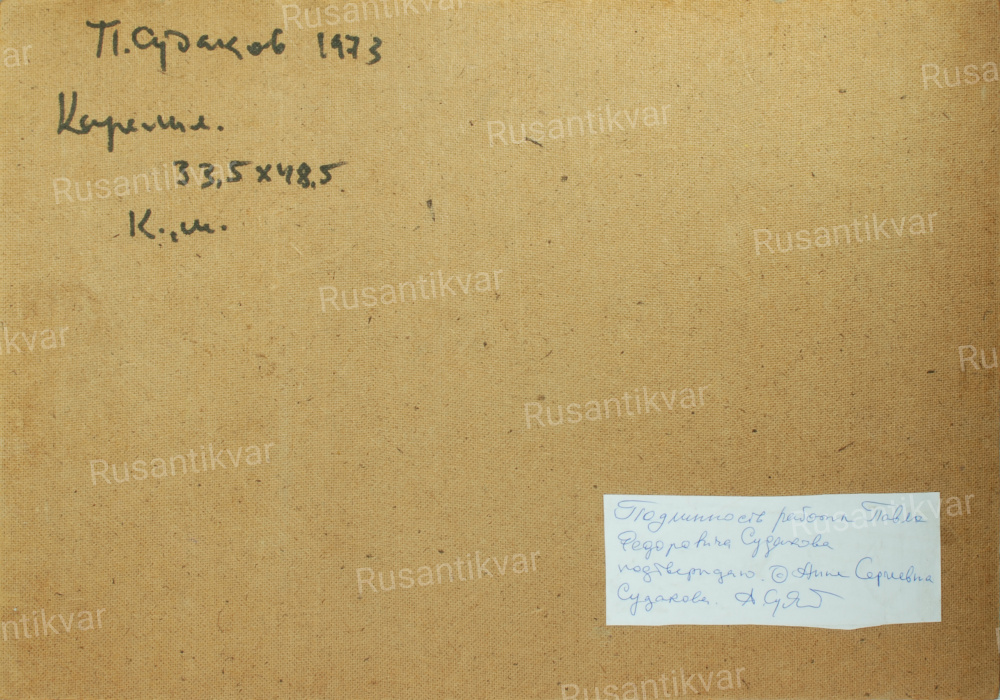 П. Судаков 1973
Карелия.
33,5 х 48,5
К., м.
Подлинность работы Павла
Федоровича Судакова
подтверждаю. © Анна Сергеевна
Судакова.
Rusantikvar